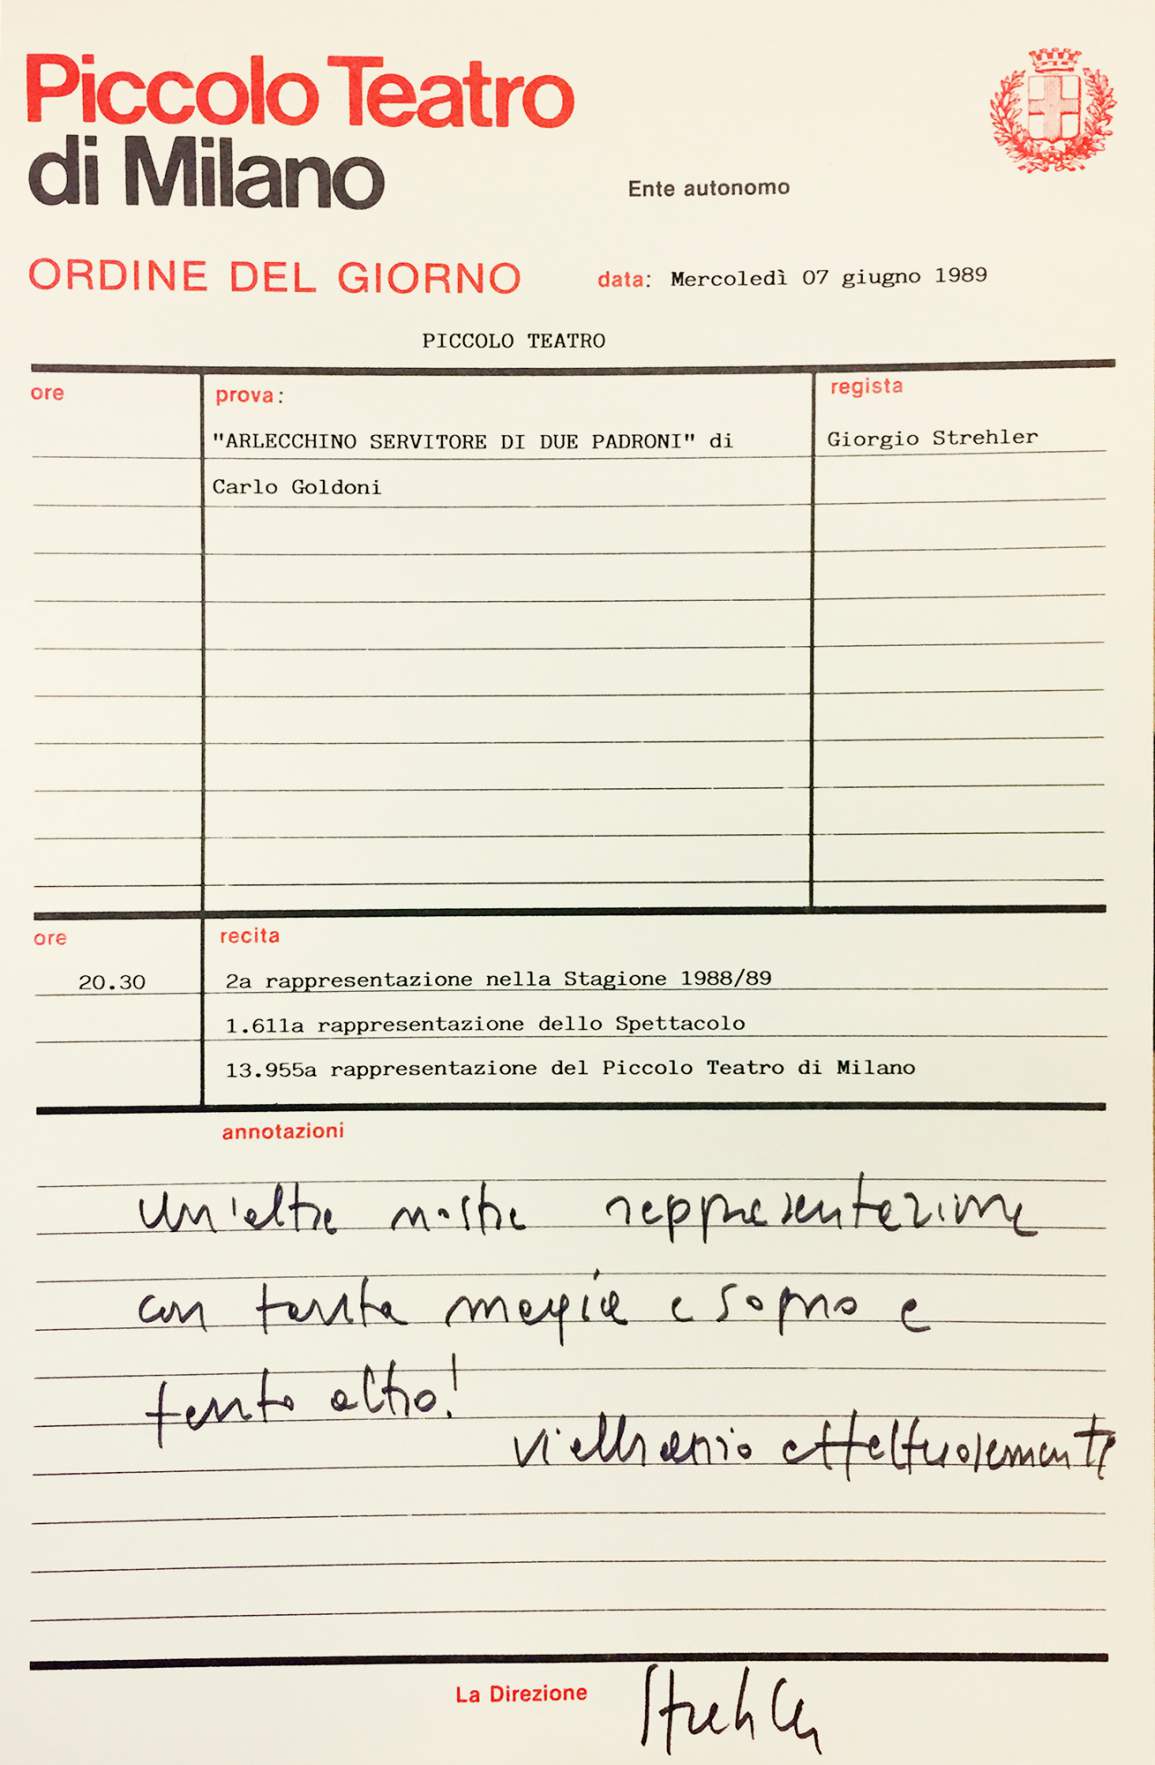 Piccolo Teatro
di Milano
Ente autonomo
ORDINE DEL GIORNO data: Mercoledì 07 giugno 1989
PICCOLO TEATRO
ore prova: regista
"ARLECCHINO SERVITORE DI DUE PADRONI" di Giorgio Strehler
Carlo Goldoni
ore recita
20.30 2a rappresentazione nella Stagione 1988/89
1.611a rappresentazione dello Spettacolo
13.955a rappresentazione del Piccolo Teatro di Milano
annotazioni
Un'altra nostra rappresentazione
con tanta magia e sogno e
tanto altro!
Vi abbraccio affettuosamente
La Direzione Strehler